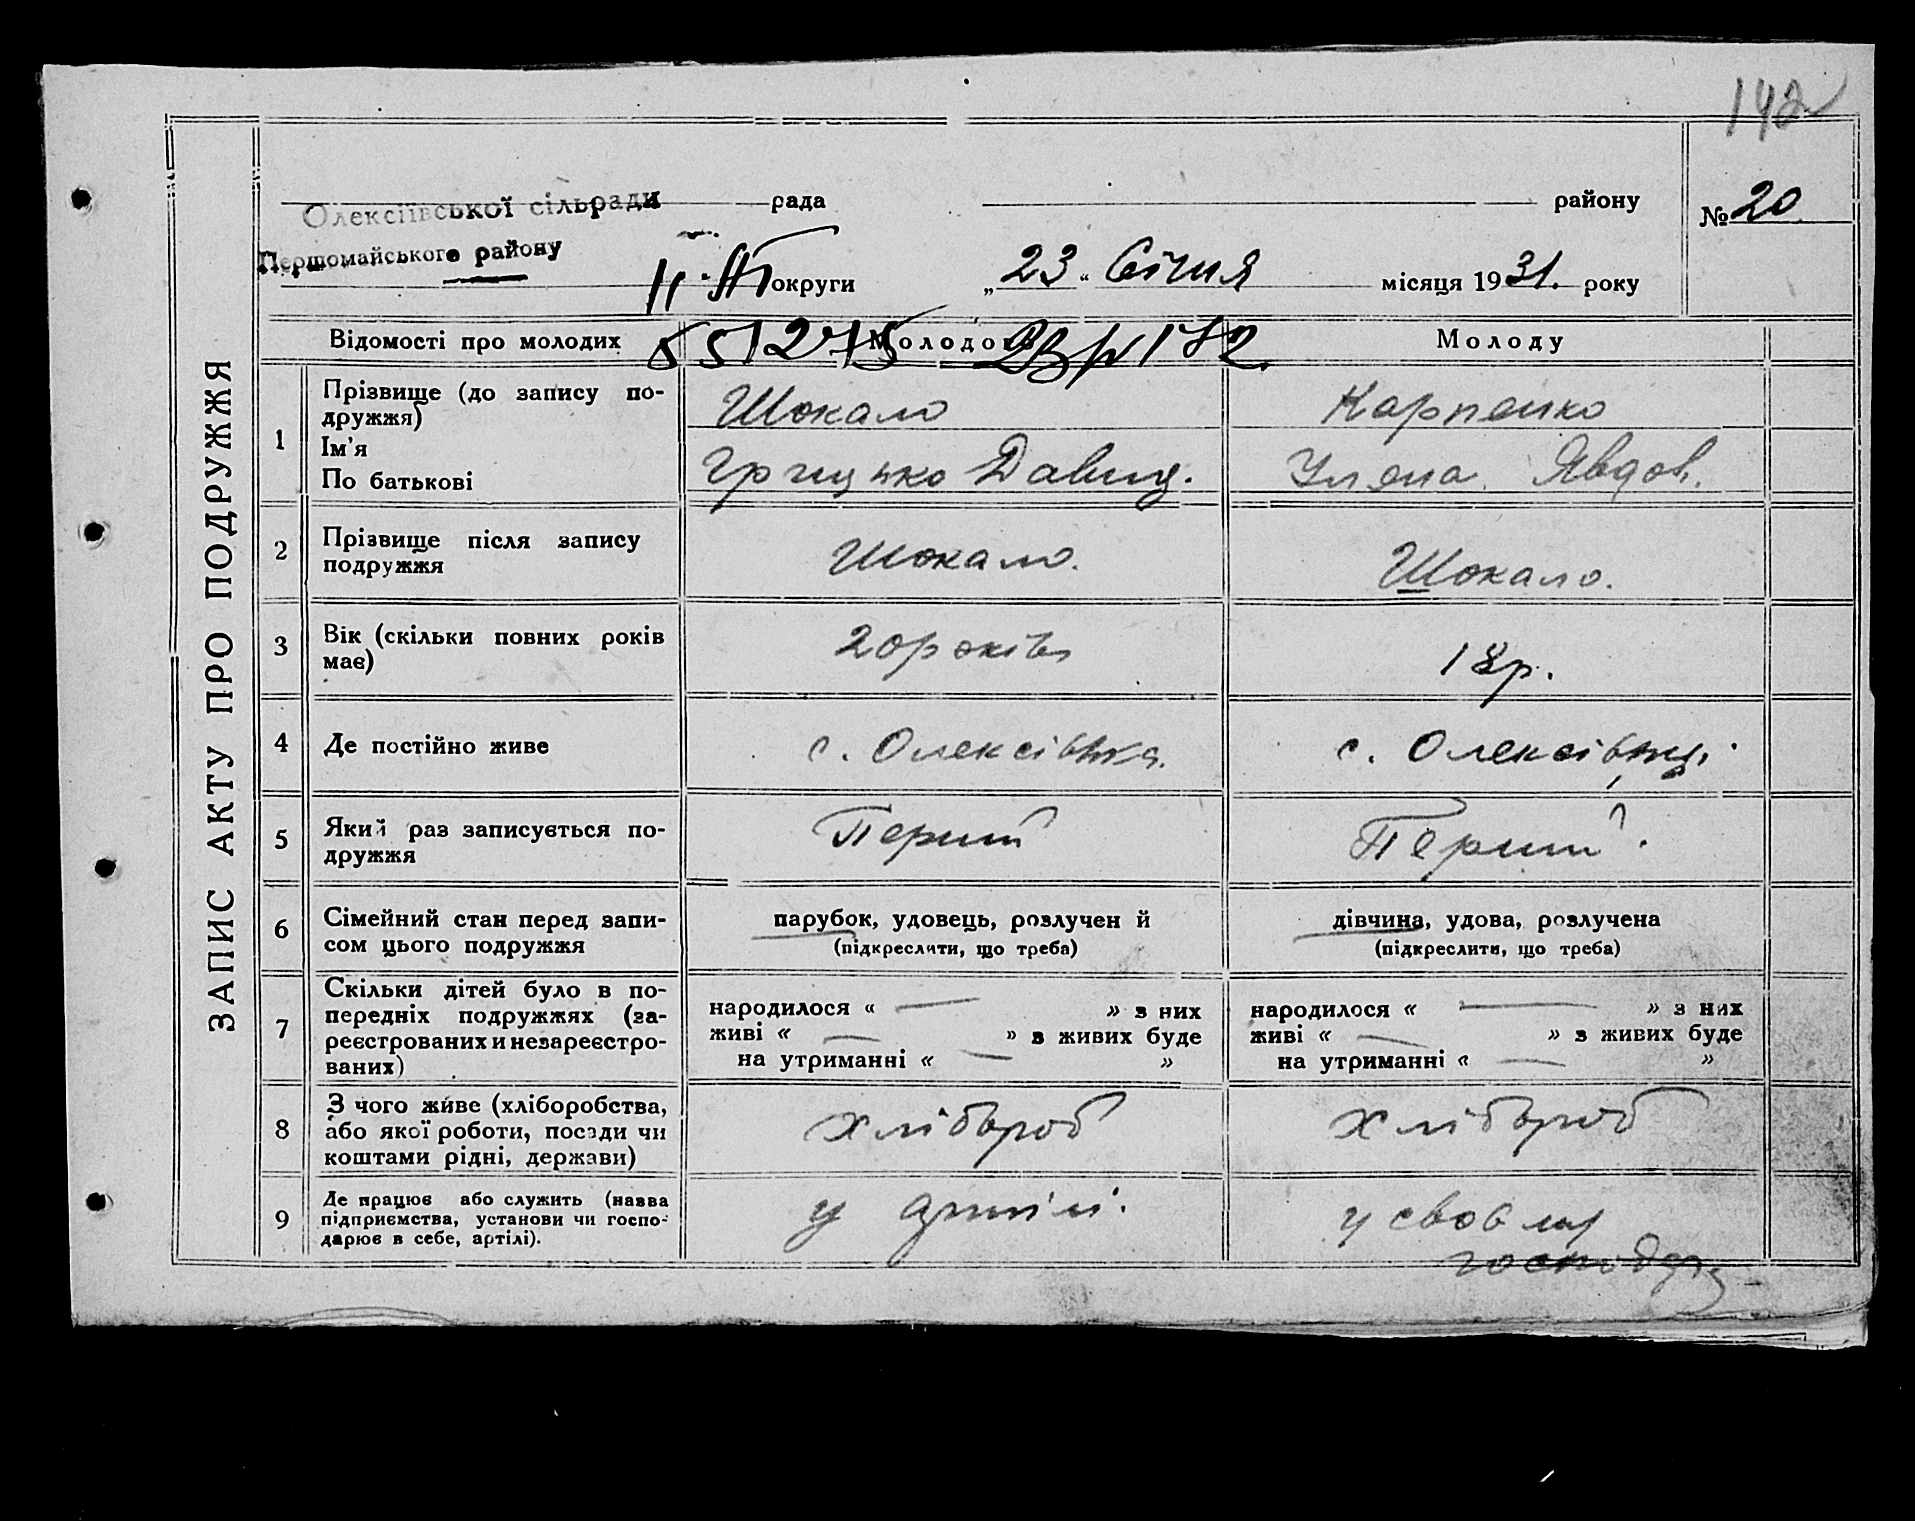 142
ЗАПИС АКТУ ПРО ПОДРУЖЖЯ
Олексіївської сільради рада району № 20
Першомайського району
округи „23“ Січня місяця 1931. року
Відомості про молодих Молодого Молоду
1 Прізвище (до запису подружжя) Шокало Карпенко
Ім'я
По батькові Грицько Давид. Уляна Явдок.
2 Прізвище після запису подружжя Шокало. Шокало.
3 Вік (скільки повних років має) 20 років 18 р.
4 Де постійно живе с. Олексієвка. с. Олексієвка.
5 Який раз записується по-
дружжя Перший Перший.
6 Сімейний стан перед запи-
сом цього подружжя
парубок, удовець, розлучен й
(підкреслити, що треба)
дівчина, удова, розлучена
(підкреслити, що треба)
7 Скільки дітей було в по-
передніх подружжях (за-
реєстрованих и незареєстро-
ваних)
народилося « — » з них
живі « — » з живих буде
на утриманні « — »
народилося « — » з них
живі « — » з живих буде
на утриманні « — »
8 З чого живе (хліборобства,
або якої роботи, посади чи
коштами рідні, держави)
хлібороб хлібороб
9 Де працює або служить (назва
підприємства, установи чи госпо-
дарює в себе, артілі).
у артілі.
у своєму